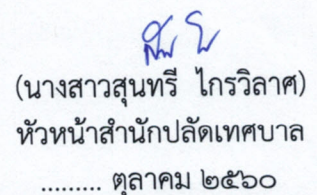 (นางสาวสุนทรี ไกรวิลาศ)
หัวหน้าสำนักปลัดเทศบาล
......... ตุลาคม ๒๕๖๐